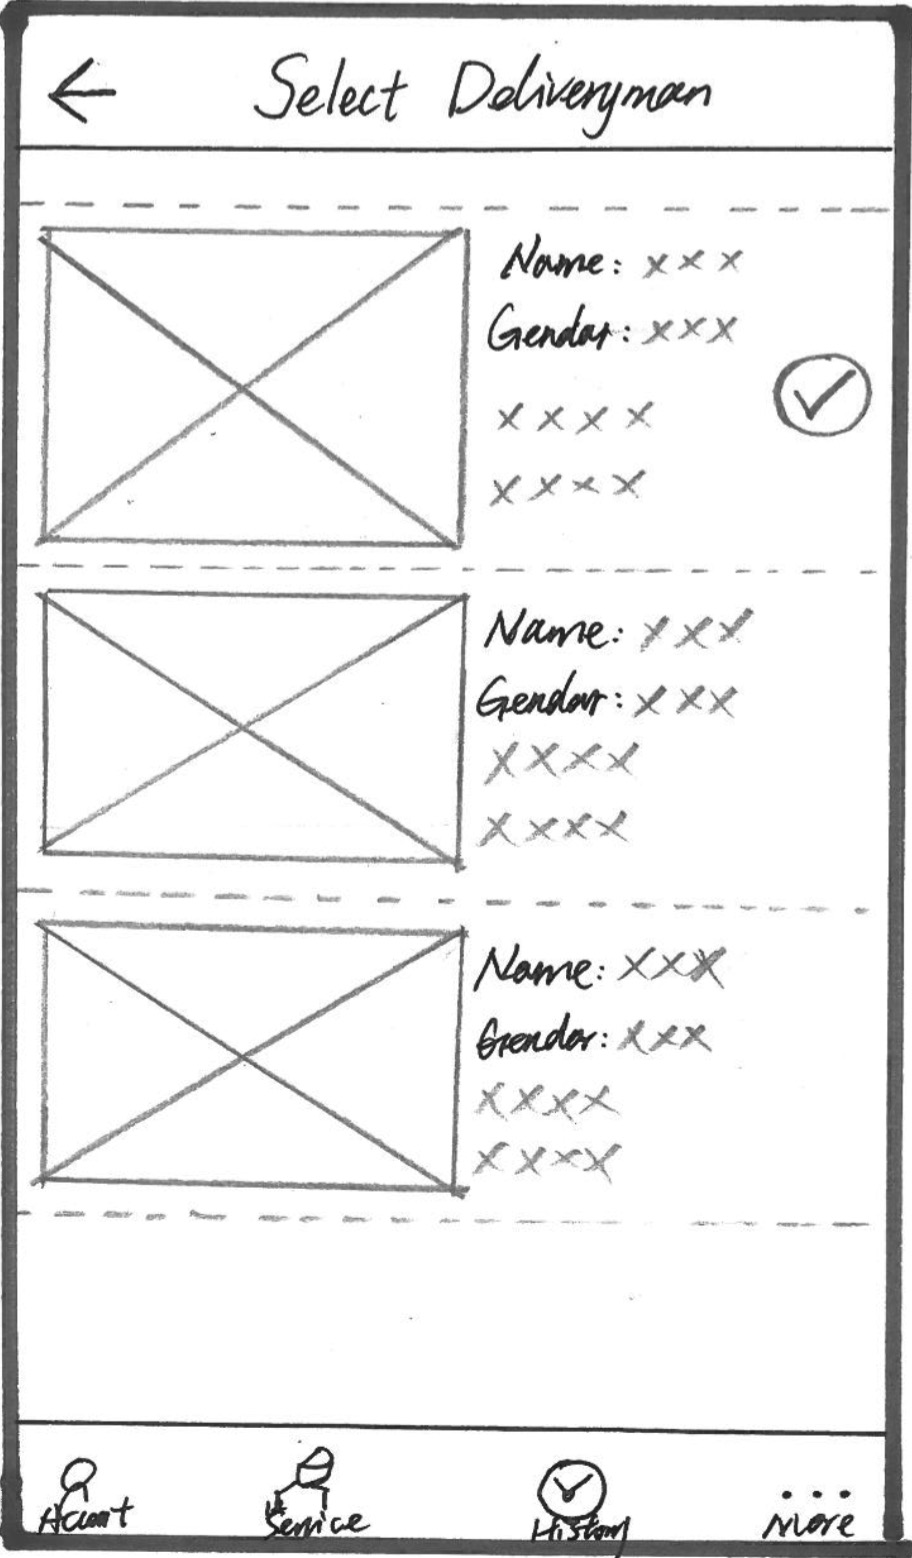 Select Deliveryman
Name: x x x
Gendar: x x x
x x x x
x x x x
Name: x x x
Gendar: x x x
x x x x
x x x x
Name: x x x
Gendor: x x x
x x x x
x x x x
Account Service History More